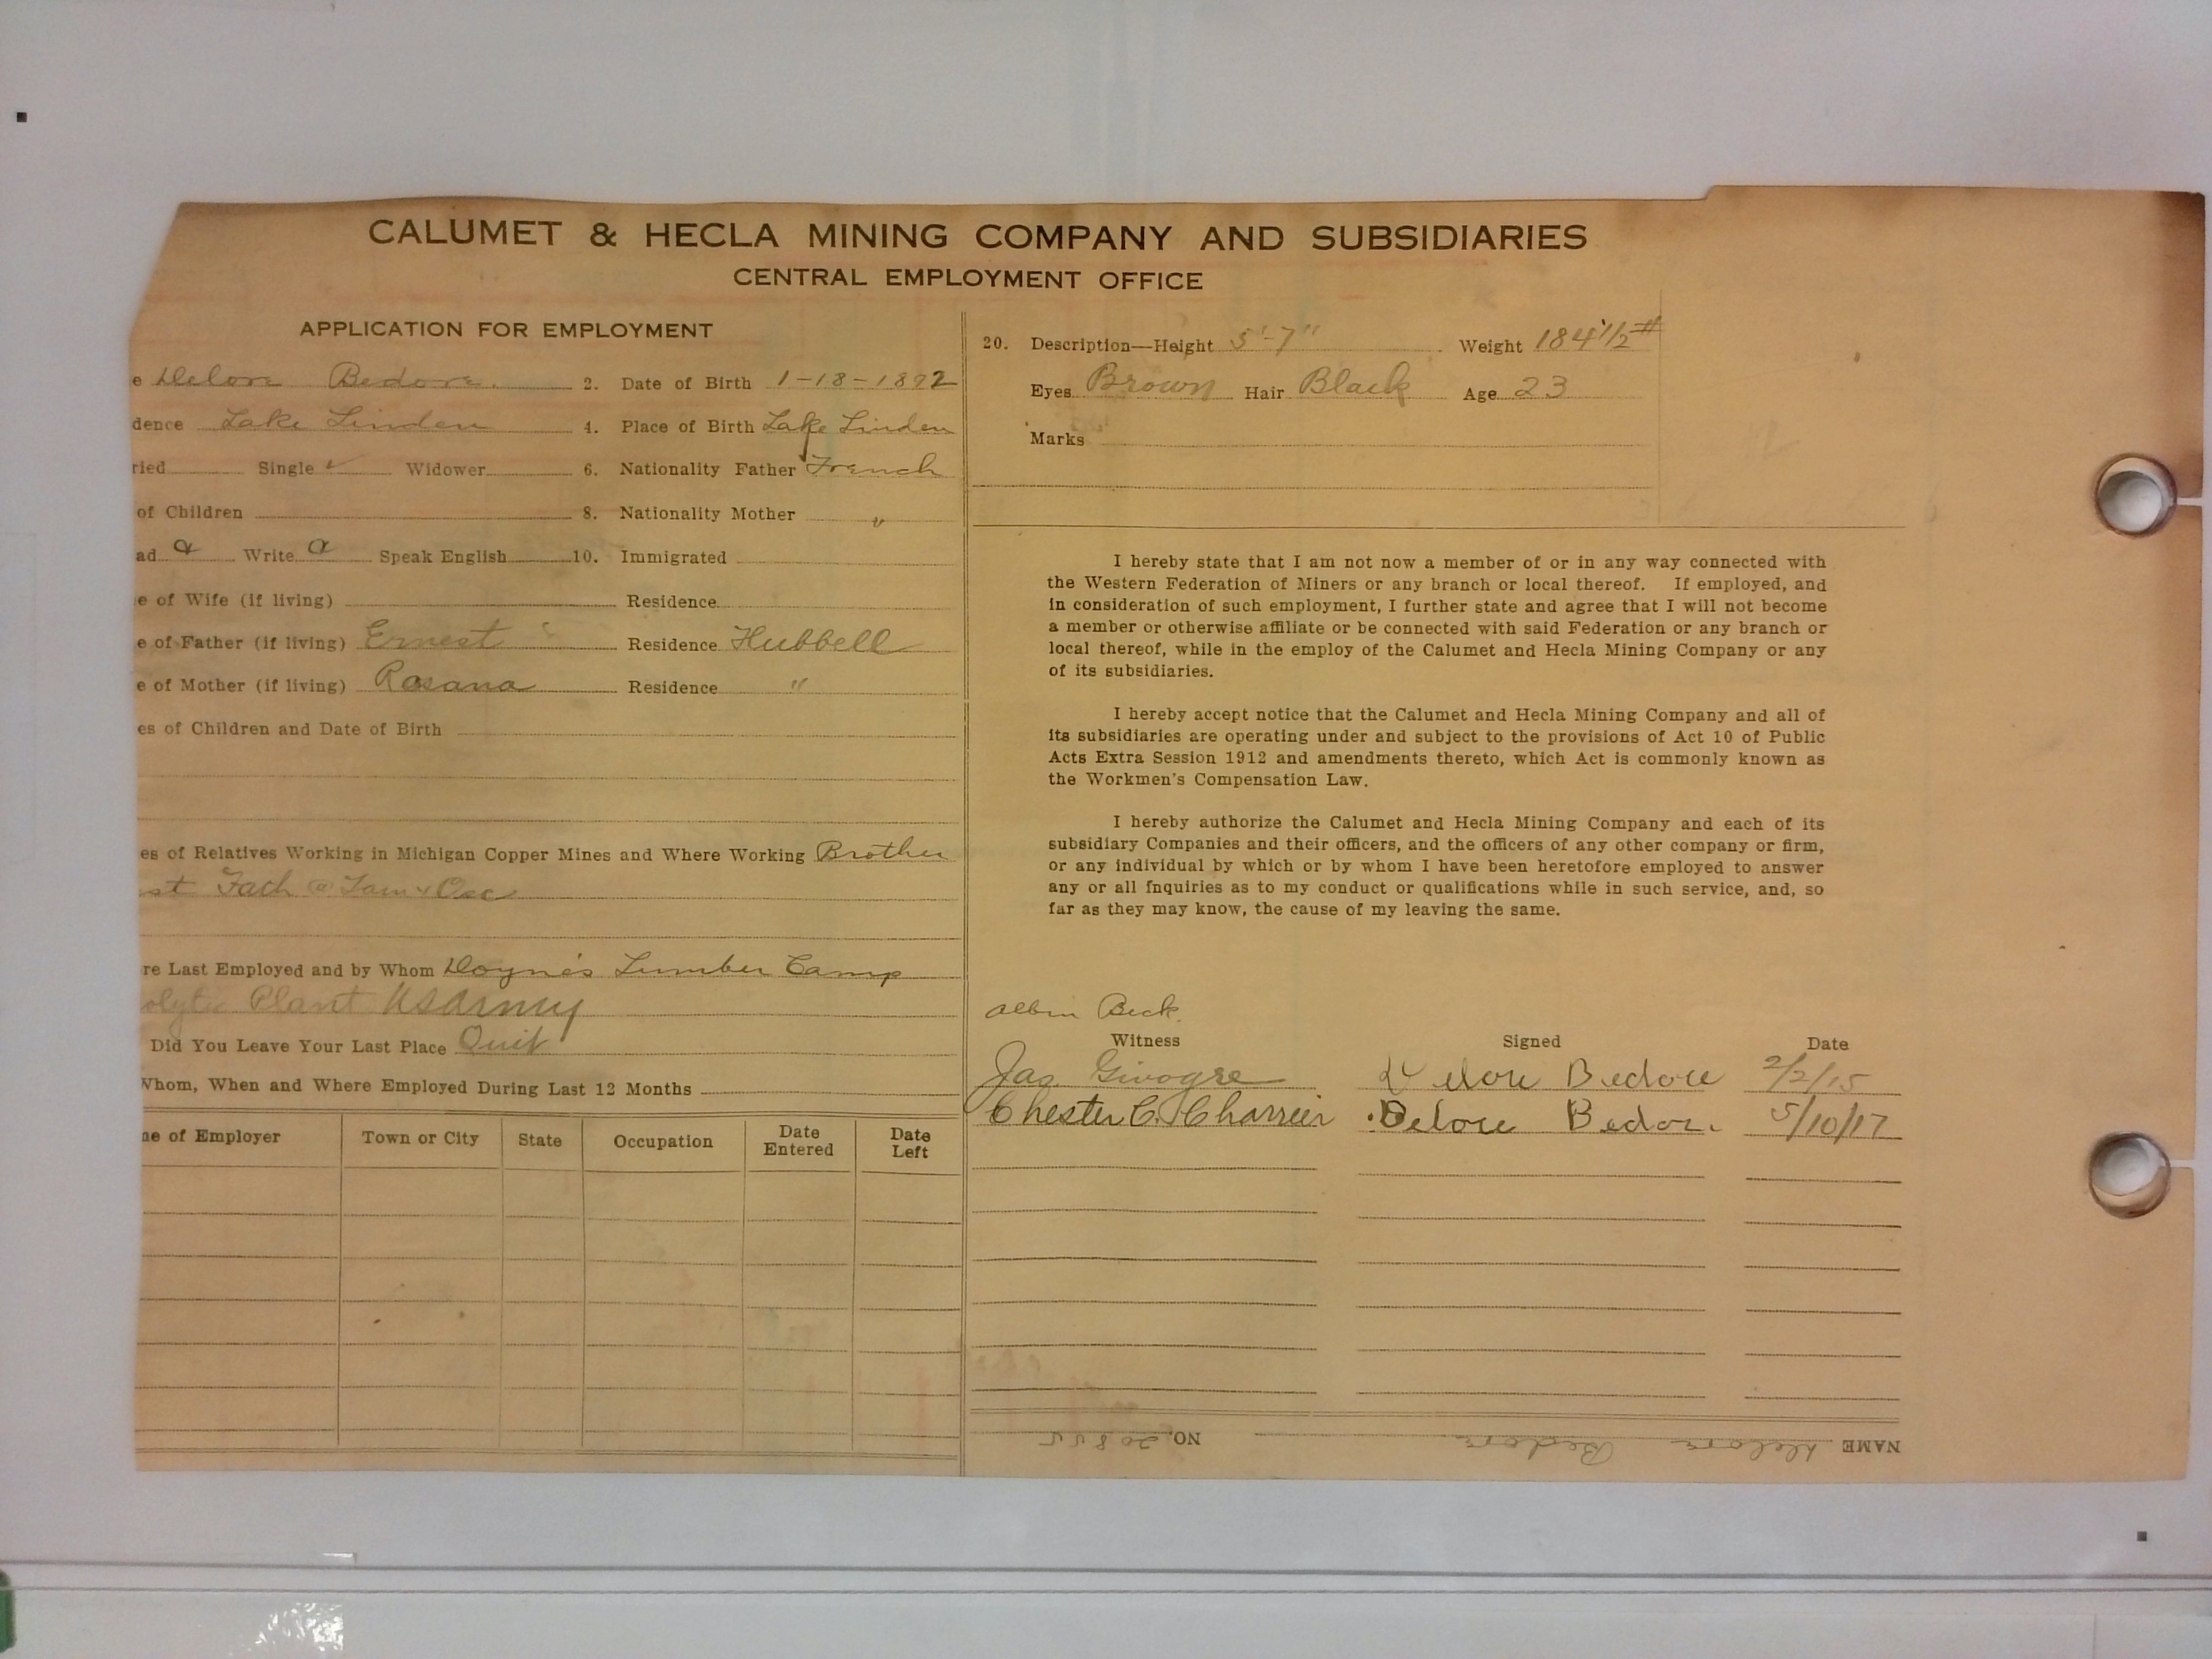 CALUMET & HECLA MINING COMPANY AND SUBSIDIARIES
CENTRAL EMPLOYMENT OFFICE
APPLICATION FOR EMPLOYMENT
e Delore Bedore. 2. Date of Birth 1-18-1892
dence Lake Linden 4. Place of Birth Lake Linden
ried Single ✓ Widower 6. Nationality Father French
of Children 8. Nationality Mother "
ad a Write a Speak English 10. Immigrated
e of Wife (if living) Residence
e of Father (if living) Ernest Residence Hubbell
e of Mother (if living) Rosana Residence "
es of Children and Date of Birth
es of Relatives Working in Michigan Copper Mines and Where Working Brother
st Fach @ Tam & Osc
re Last Employed and by Whom Doyne's Lumber Camp
olytic Plant US Army
Did You Leave Your Last Place Quit
Whom, When and Where Employed During Last 12 Months
ne of Employer Town or City State Occupation Date Entered Date Left
20. Description—Height 5'-7" Weight 184 1/2 #
Eyes Brown Hair Black Age 23
Marks
I hereby state that I am not now a member of or in any way connected with
the Western Federation of Miners or any branch or local thereof. If employed, and
in consideration of such employment, I further state and agree that I will not become
a member or otherwise affiliate or be connected with said Federation or any branch or
local thereof, while in the employ of the Calumet and Hecla Mining Company or any
of its subsidiaries.
I hereby accept notice that the Calumet and Hecla Mining Company and all of
its subsidiaries are operating under and subject to the provisions of Act 10 of Public
Acts Extra Session 1912 and amendments thereto, which Act is commonly known as
the Workmen's Compensation Law.
I hereby authorize the Calumet and Hecla Mining Company and each of its
subsidiary Companies and their officers, and the officers of any other company or firm,
or any individual by which or by whom I have been heretofore employed to answer
any or all inquiries as to my conduct or qualifications while in such service, and, so
far as they may know, the cause of my leaving the same.
Albin Beck
Witness Signed Date
Jas. Givogre Delore Bedore 2/2/15
Chester C. Charrier Delore Bedor. 5/10/17
NAME Delore Bedore NO. 20855